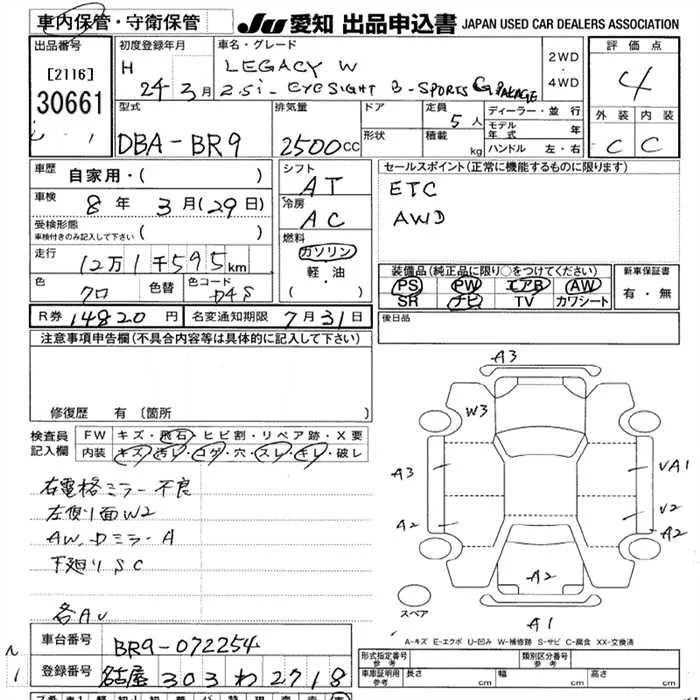 車内保管・守衛保管
JU 愛知 出品申込書 JAPAN USED CAR DEALERS ASSOCIATION
出品番号
[2116]
30661
初度登録年月
H 24年 3月
車名・グレード
LEGACY W
2.5i - EYESIGHT B-SPORTS G PAKAGE
2WD
・
4WD
評価点
4
外装 内装
C C
型式
DBA-BR9
排気量
2500CC
ドア
形状
定員
5人
積載
kg
ディーラー・並行
モデル年式 年
ハンドル 左・右
車歴 自家用・( )
車検 8年 3月(29日)
受検形態
車検付きのみ記入して下さい ( )
走行
12万1千595km
色
クロ
色替
色コード
D4S
シフト
AT
冷房
AC
燃料
ガソリン
軽・油
・( )
セールスポイント(正常に機能するものに限ります)
ETC
AWD
装備品(純正品に限り○をつけてください)
PS PW エアB AW
SR ナビ TV カワシート
新車保証書
有・無
R券 14820円 名変通知期限 7月31日
後日品
注意事項申告欄(不具合内容等は具体的に記入して下さい)
修復歴 有 〔箇所
検査員
記入欄
FW キズ・飛石・ヒビ割・リペア跡・X要
内装 キズ・汚レ・コゲ・穴・スレ・キレ・破レ
右電格ミラー不良
左側面W2
AW、DミラーA
下廻りSC
各AU
A3
W3
A3
A2
UA1
U2
A2
A2
A1
スペア
A-キズ E-エクボ U-凹み W-補修跡 S-サビ C-腐食 XX-交換済
車台番号 BR9-072254
登録番号 名古屋 303 わ 2718
形式指定番号
参考
類別区分番号
参考
車庫証明用
参考
長さ cm 幅 cm 高さ cm